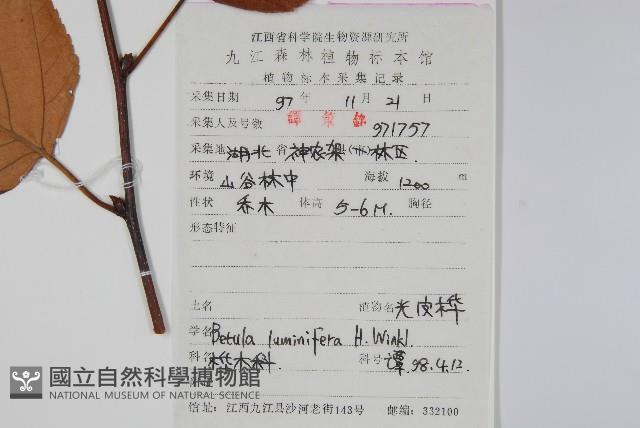 江西省科学院生物资源研究所
九江森林植物标本馆
植物标本采集记录
采集日期 97年 11月 21日
采集人及号数 譚策銘 971757
采集地 湖北省神农架县(市)林区.
环境 山谷林中 海拔 1200 m
性状 乔木 体高 5-6M. 胸径
形态特征
土名 植物名 光皮桦
学名 Betula luminifera H. Winkl.
科名 桦木科. 科号 譚. 98.4.12.
國立自然科學博物館
NATIONAL MUSEUM OF NATURAL SCIENCE
馆址:江西九江县沙河老街143号 邮编:332100